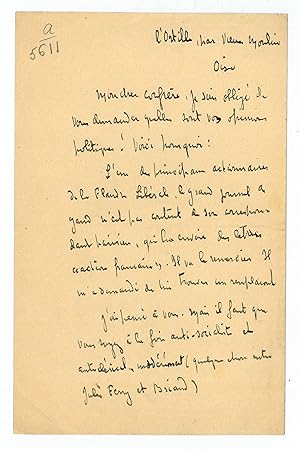 a
5611
l'Ortille, par Vieux Moulin
Oise
Mon cher confrère, je suis obligé de
vous demander quelles sont vos opinions
politiques ! Voici pourquoi :
L'un des principaux actionnaires
de la Flandre Libérale, le grand journal de
gand n'est pas content de son correspon
dant parisien, qui lui envoie des lettres
"action française". Il va le remercier. Il
m'a demandé de lui trouver un remplaçant
j'ai pensé à vous. Mais il faut que
vous soyez à la fois anti-socialiste et
anticlérical, modérément (quelque chose entre
Jules Ferry et Briand)